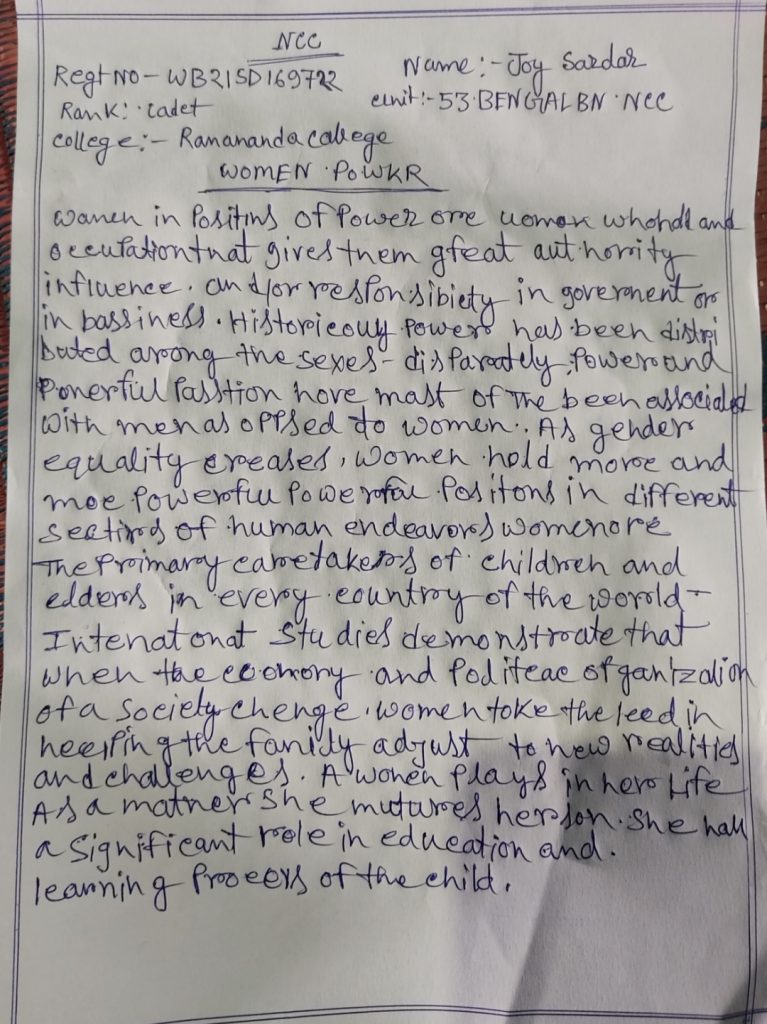 NCC
Regt NO - WB21SD169722 Name :- Joy Sardar
Rank: cadet unit :- 53 BENGAL BN NCC
college :- Ramananda college
WOMEN POWKR
Wamen in Positins of Power ore women whohdl and
occupation that gives tnem gfeat authority
influence. and/or responsibiety in governent or
in bassiness. Historicouy Power has been distri
buted among the sexes - disparately, Power and
Ponerful Passtion hove mast of the been associated
with men as oppsed to women. As gender
equality creases, women hold more and
moe Powerfuu Powerful Positons in different
sectirs of human endeavors women ore
The Primary caretakers of children and
edders in every country of the world -
Intenatonat Studies demonstrate that
when the economy and Poditeac ofganizalion
of a society chenge. women toke the leed in
heelping the fanidy adjust to new realities
and challenges. A wonen Plays in her Life
As a matner she mutures her son. she hau
a significant role in education and.
learning Proceeys of the child.